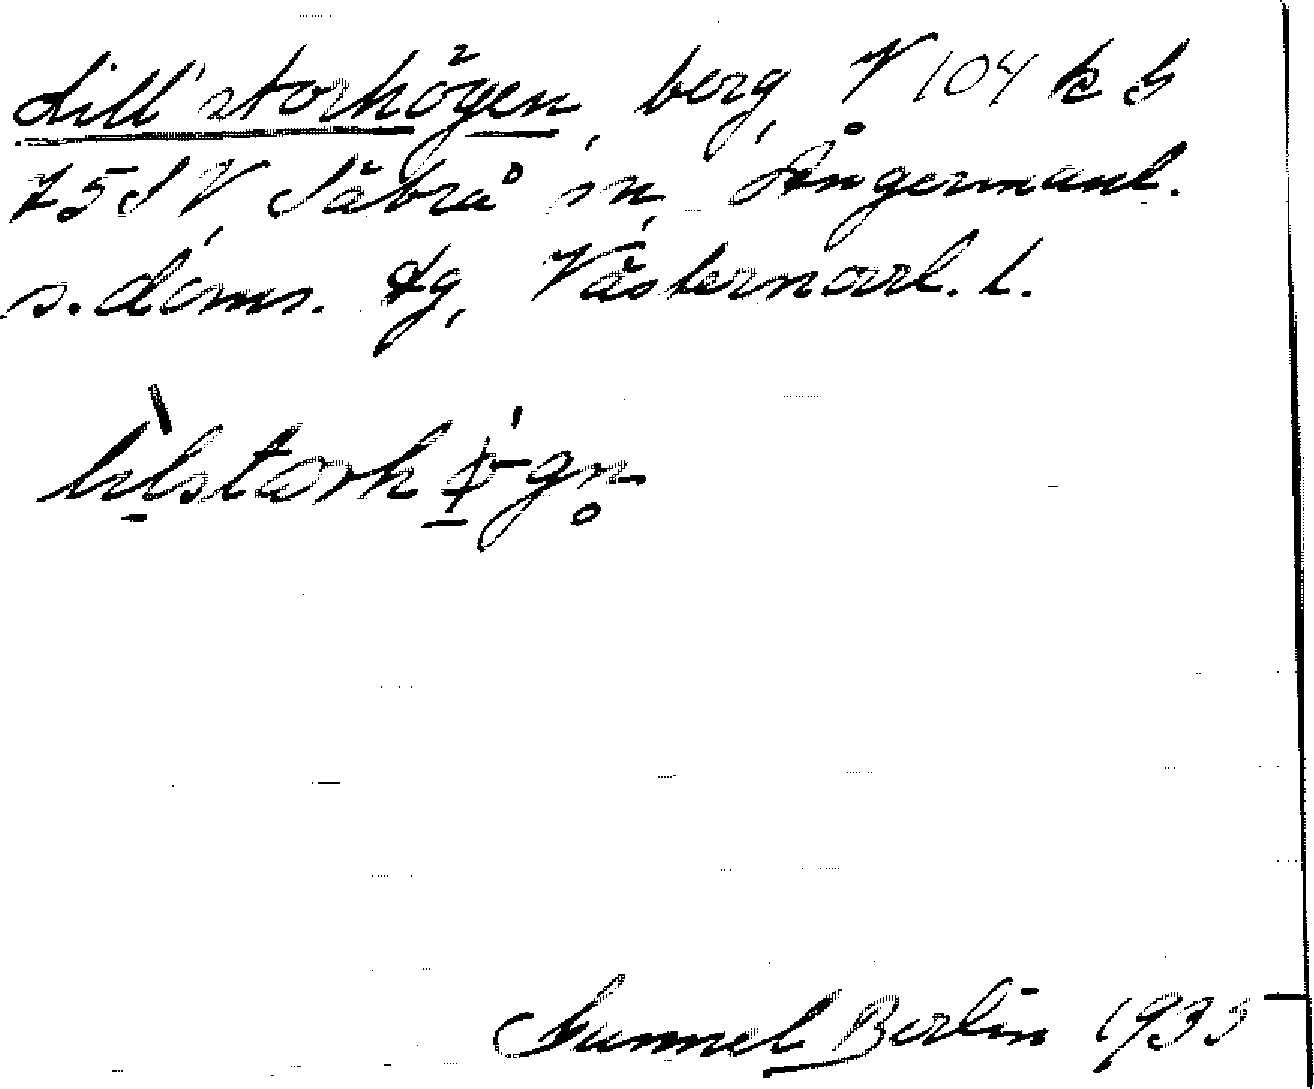 Lill'storhögen, berg, V 104 k b
75 SV Säbrå sn, Ångermanl.
s. doms. dg, Västernorrl. l.
lilstorhö̱gn̥
Gunnel Berlin 1935